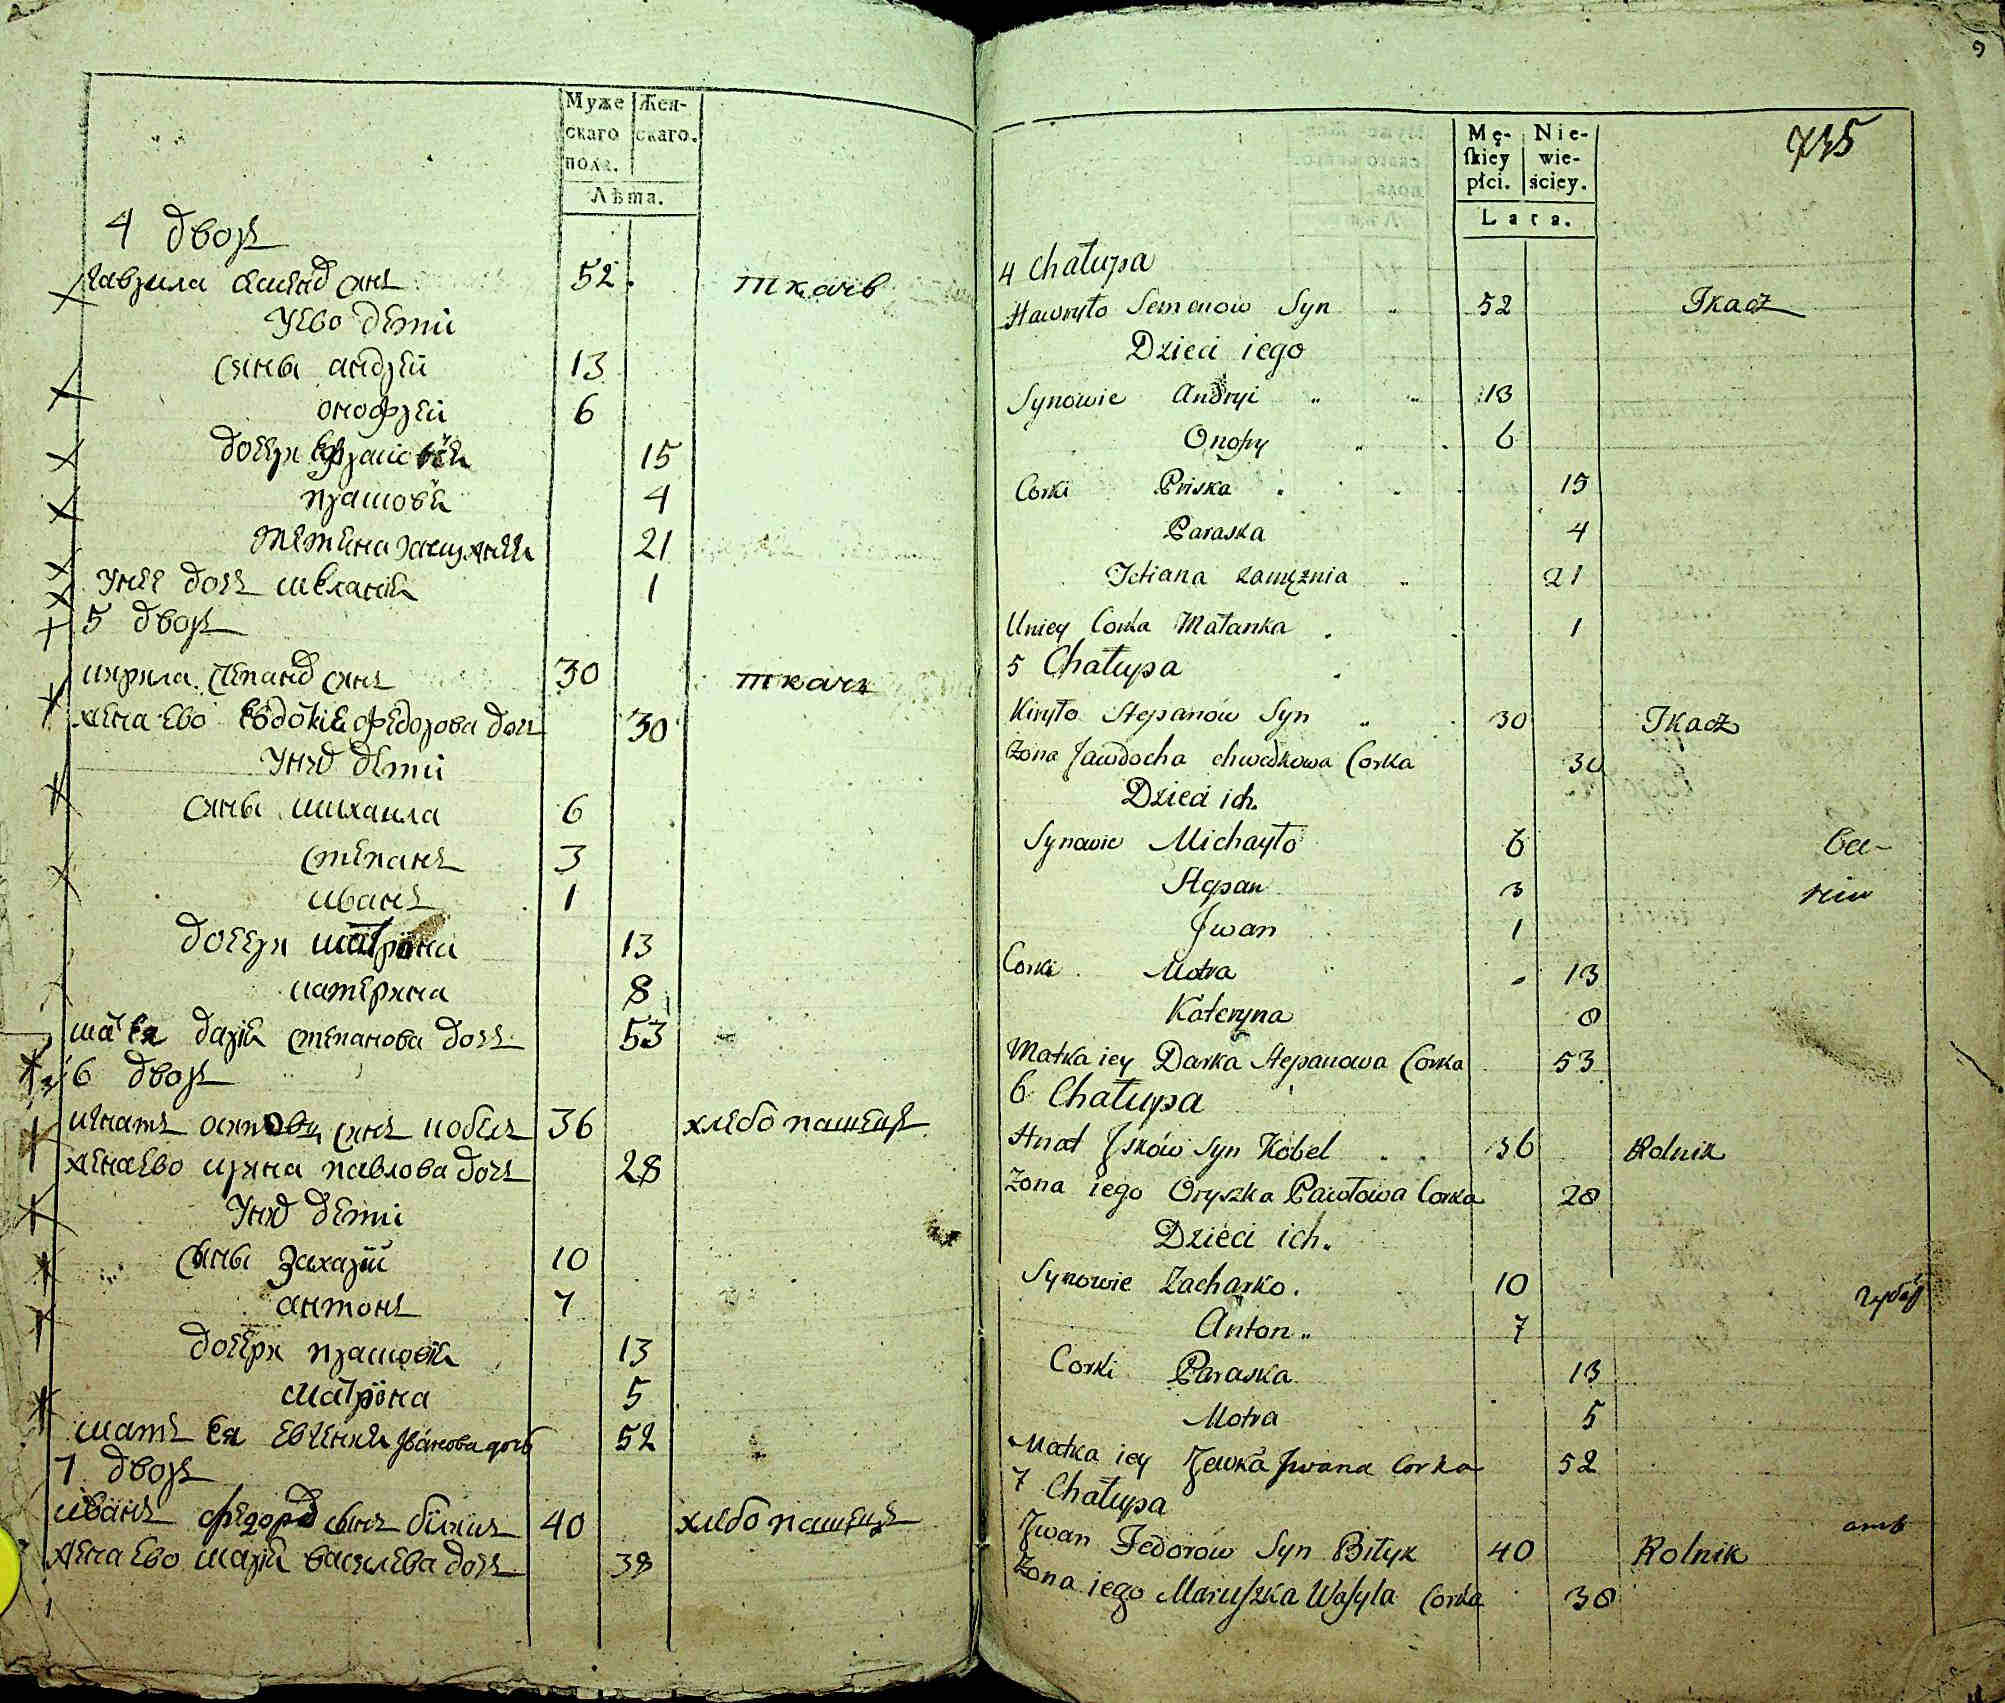 Муже
скаго
пола.
Жен-
скаго.
Лѣта.
4 дворъ
гаврила семенов синъ 52. ткачъ
Уево дети
сыны андрей 13
онофрей 6
дочери 15
прасковѣя 4
татиана замужняя 21
Унее дочъ меланія 1
5 дворъ
кирила степанов синъ 30 ткачъ
жена ево Евдокия федорова дочъ 30
Унихъ дети
сины михаила 6
степанъ 3
иванъ 1
дочери матрона 13
катерина 8
мат ея дария степанова дочъ 53
6 дворъ
игнатъ синъ кобелъ 36 хлебопашецъ
жена ево ирина павлова дочъ 28
Уних дети
сыны захарій 10
антонъ 7
дочери прасковія 13
матрона 5
мать ея евгения Іванова дочь 52
7 дворъ
иванъ федоров сынъ билик 40 хлебопашецъ
жена ево марія василева дочъ 38
9
735
Mę-
skiey
płci.
Nie-
wie-
ściey.
Lata.
4 Chałupa
Hawryło Semenow Syn 52 Tkacz
Dzieci iego
Synowie Andryi 13
Onopry 6
Corki Priska 15
Paraska 4
Tetiana zamężnia 21
Uniey Corka Małanka 1
5 Chałupa
Kiryło Stepanów Syn 30 Tkacz
Żona Jawdocha chwedkowa Corka 30
Dzieci ich.
Synowie Michayło 6
Stepan 3
Jwan 1
Corki Motra 13
Kateryna 8
Matka iey Darka Stepanowa Corka 53
6 Chałupa
Hnat Jsków Syn Kobel 36 Rolnik
Żona iego Oryszka Pawłowa Corka 28
Dzieci ich.
Synowie Zacharko. 10
Anton 7
Corki Paraska 13
Motra 5
Matka iey Jewka Jwana Corka 52
7 Chałupa
Jwan Fedorów Syn Biłyk 40 Rolnik
Żona iego Maruszka Wasyla Corka 38